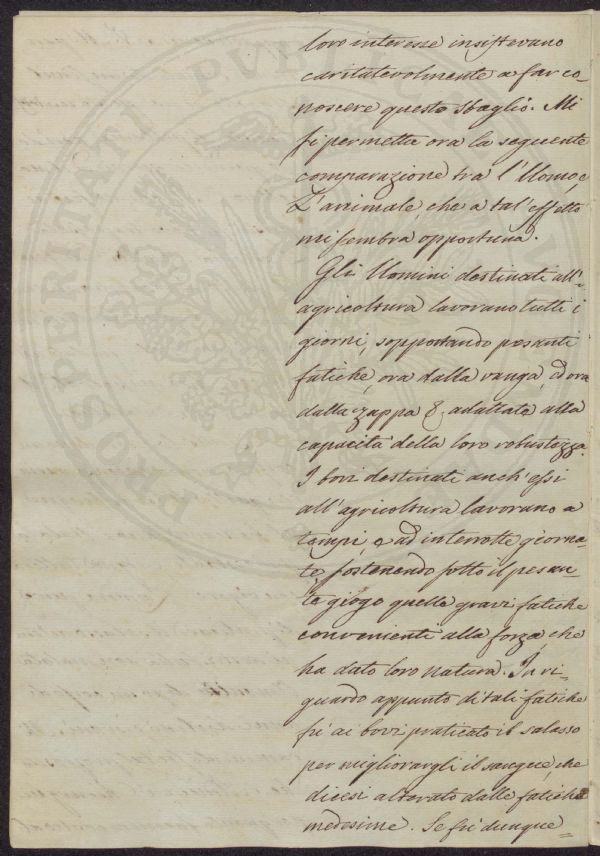 loro interesse insistevano
caritatevolmente a far co-
noscere questo sbaglio. Mi
si permetta ora la seguente
comparazione tra l'Uomo, e
L'animale, che a tal' effetto
mi sembra opportuna.
Gli Uomini destinati all'
agricoltura lavorano tutti i
giorni, sopportando pesanti
fatiche, ora dalla vanga, ed ora
dalla zappa &. adattate alla
capacità della loro robustezza.
I bovi destinati anch' essi
all' agricoltura lavorano a
tempi, e ad interrotte giorna-
te, sostenendo sotto il pesan-
te giogo quelle gravi fatiche
convenienti alla forza, che
ha dato loro natura. In ri-
guardo appunto di tali fatiche
fù ai bovi praticato il salasso
per migliorargli il sangue, che
dicesi alterato dalle fatiche
medesime. Se fù dunque
PROSPERITATI PUBLICAE